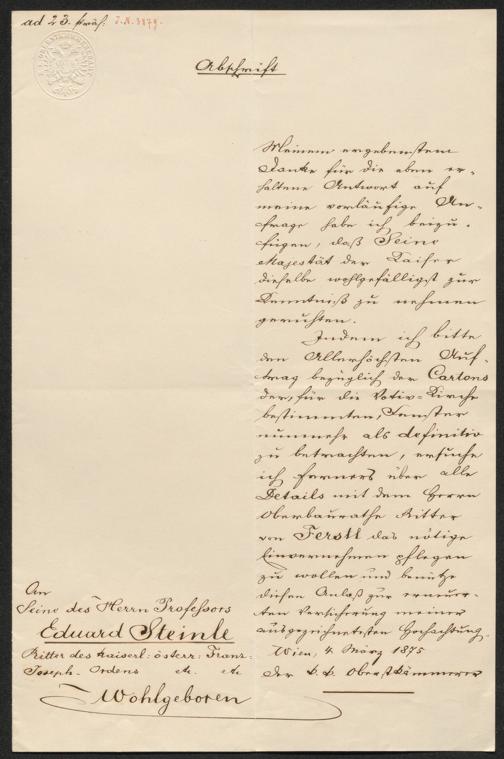 ad 23. präs: J.N. 3879.
Abschrift
Meinem ergebenstem
Danke für die eben er-
haltene Antwort auf
meine vorläufige An-
frage habe ich beizu-
fügen, daß Seine
Majestät der Kaiser
dieselbe wohlgefälligst zur
Kenntniß zu nehmen
geruhten.
Indem ich bitte
den Allerhöchsten Auf-
trag bezüglich der Cartons
der, für die Votiv-Kirche
bestimmten, Fenster
nunmehr als definitiv
zu betrachten, ersuche
ich ferners über alle
Details mit dem Herrn
Oberbaurathe Ritter
von Ferstl das nötige
Einvernehmen pflegen
zu wollen und benütze
diesen Anlaß zur erneuer-
ten Versicherung meiner
ausgezeichnetsten Hochachtung.
Wien, 4. März 1875
Der k. k. Oberstkämmerer
An
Seine des Herrn Professors
Eduard Steinle
Ritter des Kaiserl: österr: Franz-
Joseph-Ordens etc. etc.
Wohlgeboren